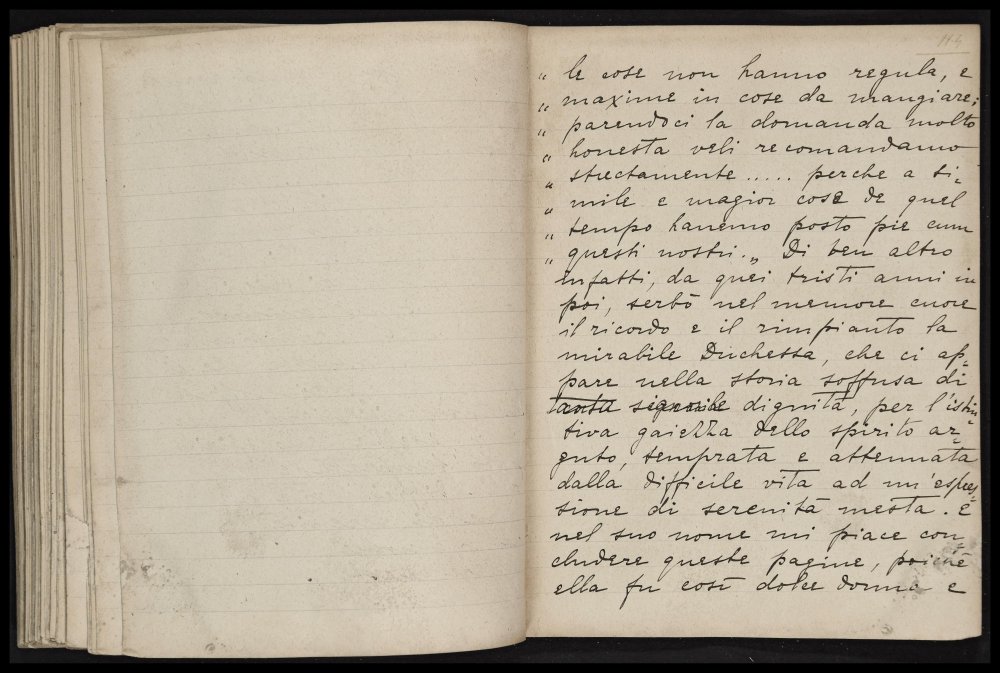 114
„ le cose non hanno regula, e
„ maxime in cose da mangiare;
„ parendoci la domanda molto
„ honesta veli recomandamo
„ strectamente ..... perche a si=
„ mile e magior cose de quel
„ tempo hanemo posto pie cum
„ questi nostri.„ Di ben altro
infatti, da quei tristi anni in
poi, serbò nel memore cuore
il ricordo e il rimpianto la
mirabile Duchessa, che ci ap=
pare nella storia soffusa di
tanta signorile dignità, per l'istin=
tiva gaiezza dello spirito ar=
guto, temprata e attenuata
dalla difficile vita ad un'espres=
sione di serenità mesta. E
nel suo nome mi piace con=
cludere queste pagine, poichè
ella fu così dolce donna e